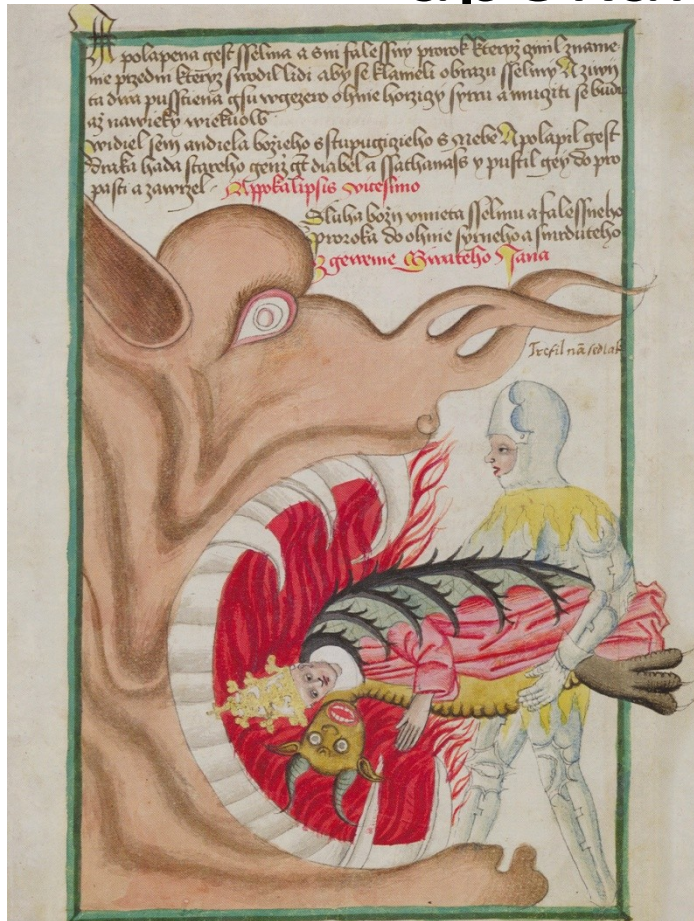 A polapena gest sselma a s ni falessny prorok kteryz czinil zname-
nie przedni kterýz swodil lidi aby se klaneli obrazu sselmy A ziwij
ta dwa pusstiena gsu w gezero ohnie horziczy syru a mucziti se budu
až na wieky wiekuow
widiel sem andiela božieho sstupugicieho s nebe A polapil gest
draka hada stareho genž gt diabel a ssathanass y pustil gey do pro
pasti a zawrzel - Appokalipsis vicesimo
Sluha božy vmieta sselmu a falessneho
proroka do ohnie syrneho a smrduteho
Z gewenie Swateho Jana
Trefil
sedlak